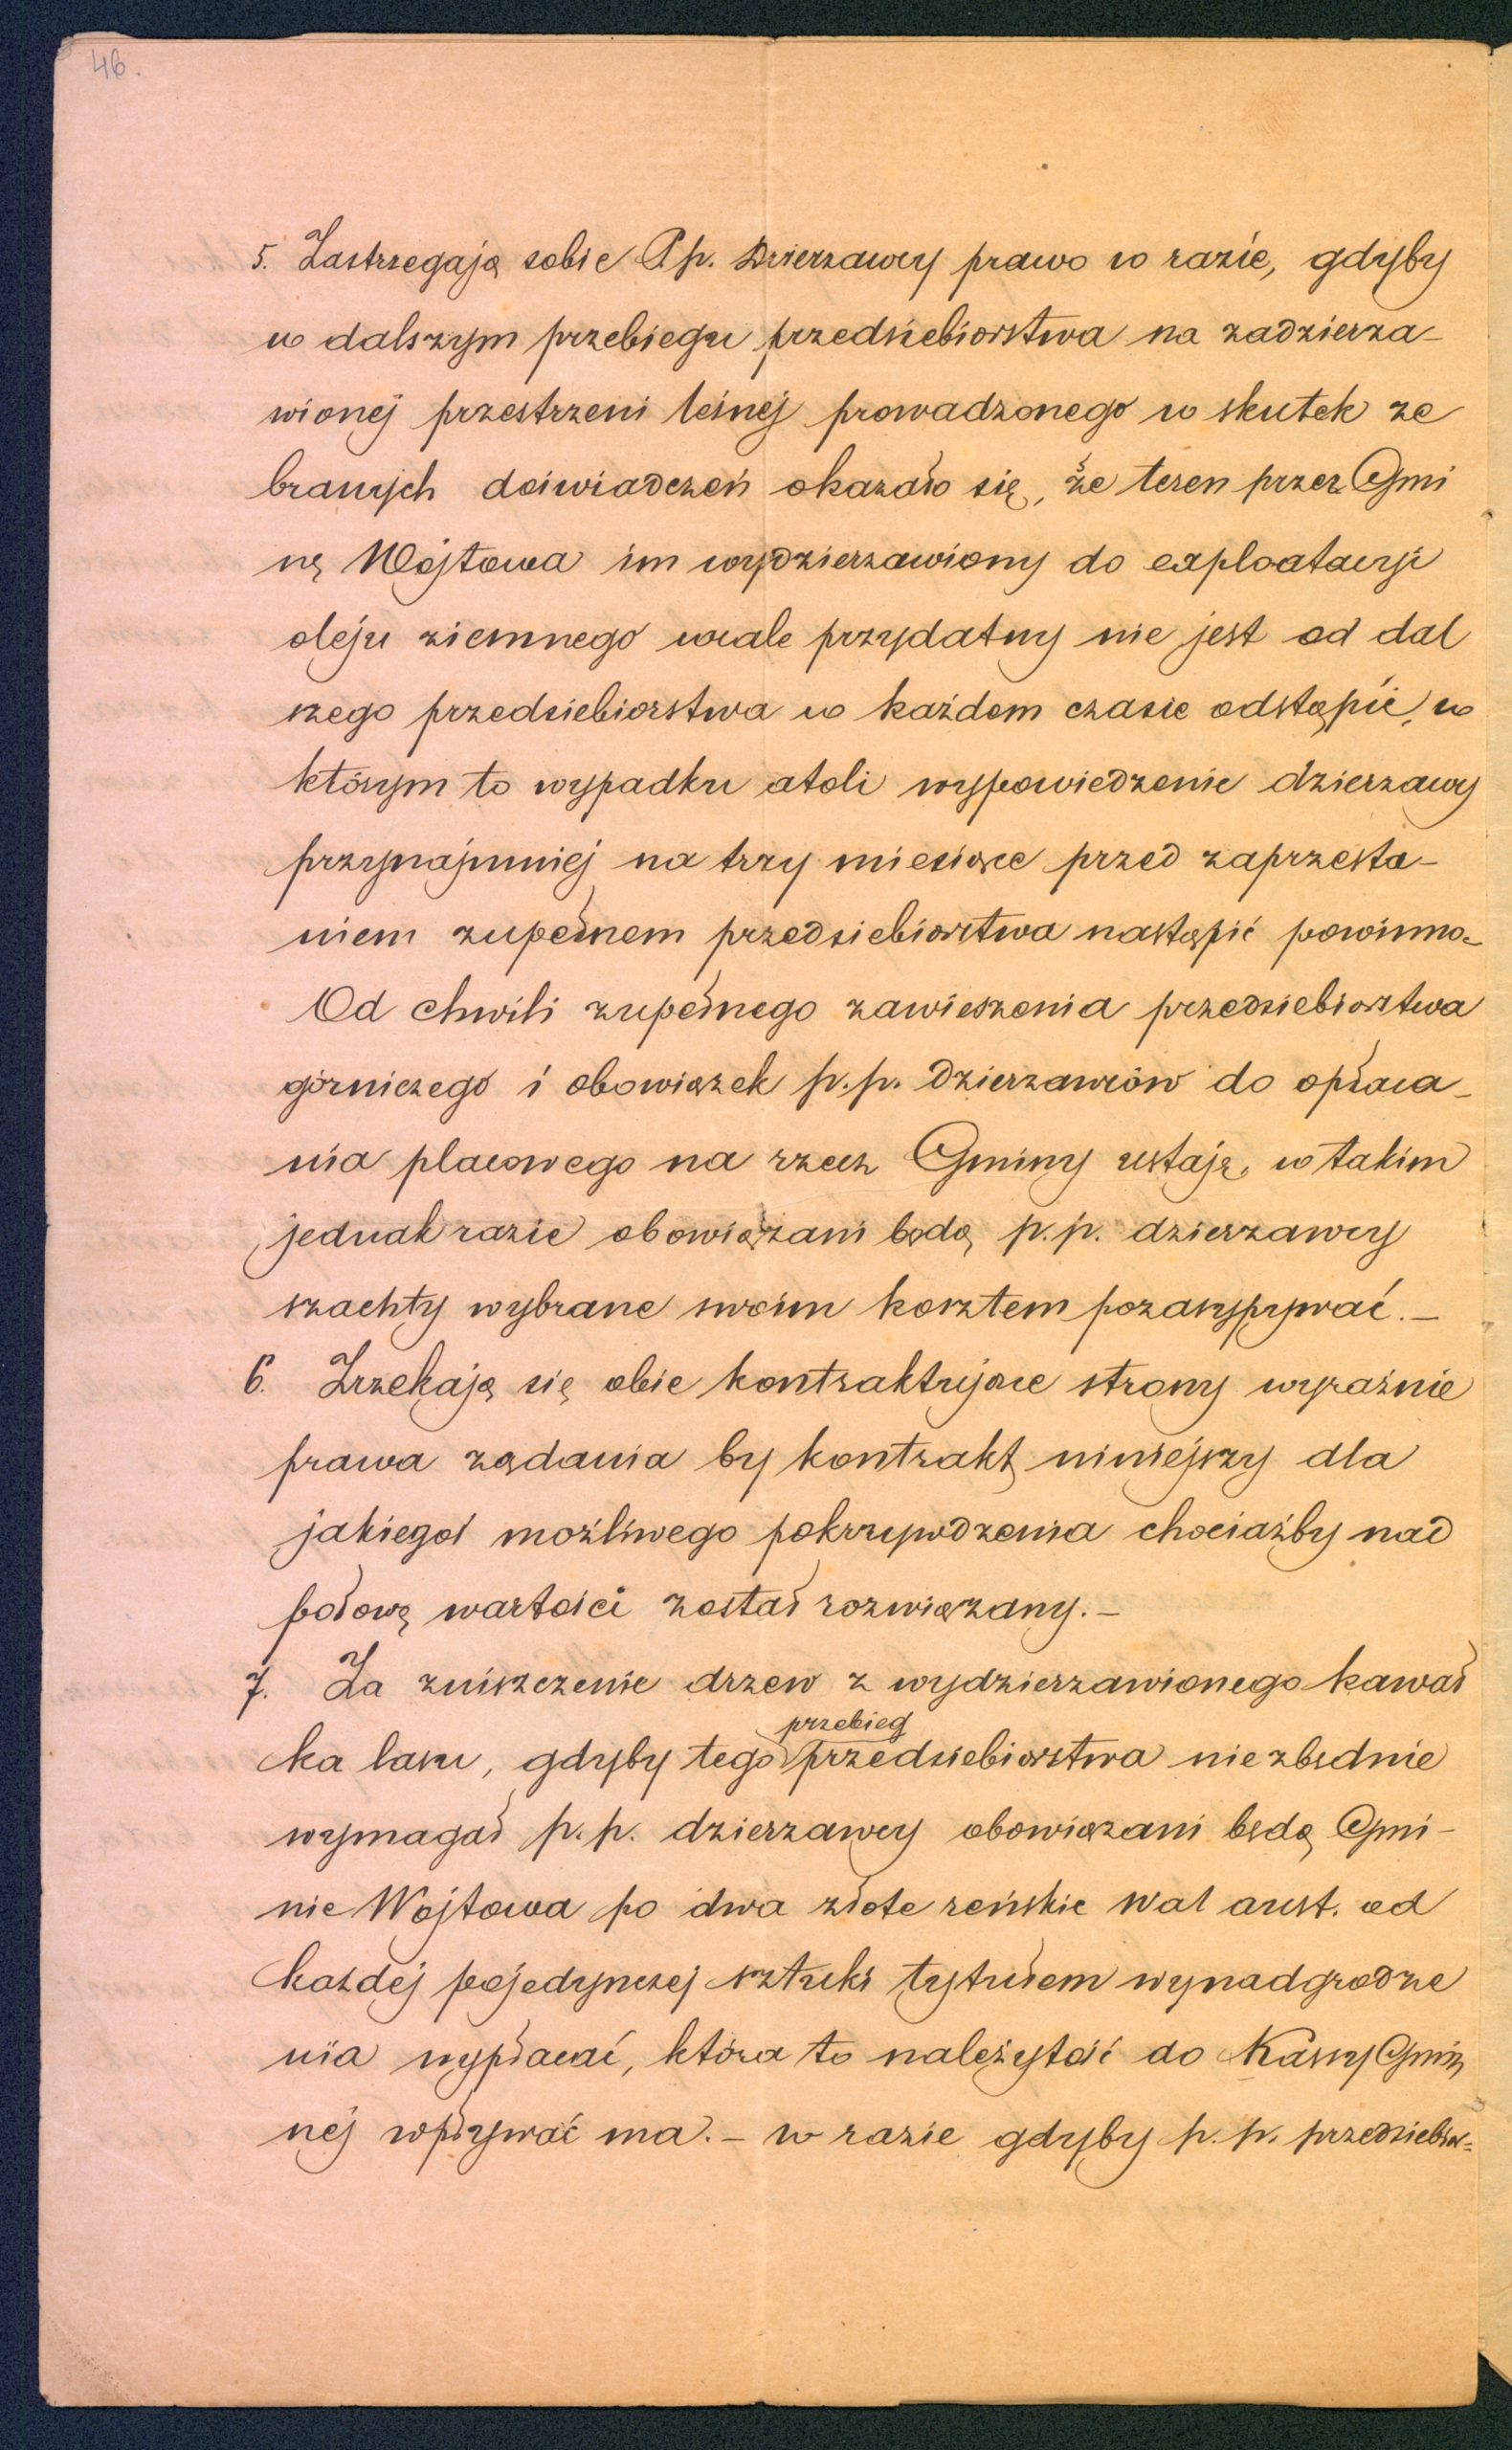 46.
5. Zastrzegają sobie P.p. Dzierzawcy prawo w razie, gdyby
w dalszym przebiegu przedsiebiorstwa na zadzierza-
wionej przestrzeni leśnej prowadzonego w skutek ze
branych doświadczeń okazało się, że teren przez Gmi
nę Wójtowa im wydzierzawiony do exploatacyi
oleju ziemnego wcale przydatny nie jest od dal
szego przedsiebiorstwa w każdem czasie odstąpić, w
którym to wypadku atoli wypowiedzenie dzierzawy
przynajmniej na trzy miesiące przed zaprzesta-
niem zupełnem przedsiebiorstwa nastąpić powinno.-
Od chwili zupełnego zawieszenia przedsiebiorstwa
górniczego i obowiązek p.p. Dzierzawców do opłaca-
nia placowego na rzecz Gminy ustaje, w takim
jednak razie obowiązani będą p.p. dzierzawcy
szachty wybrane swoim kosztem pozasypywać.-
6. Zrzekają się obie kontraktujące strony wyraźnie
prawa ządania by kontrakt niniejszy dla
jakiegoś możliwego pokrzywdzenia chociażby nad
połowę wartości został rozwiązany.-
7. Za zniszczenie drzew z wydzierzawionego kawał
przebieg
ka lasu, gdyby tego przedsiebiorstwa niezbędnie
wymagał p.p. dzierzawcy obowiązani będą Gmi-
nie Wojtowa po dwa złote reńskie wal aust. od
każdej pojedynczej sztuki tytułem wynadgrodze
nia wypłacać, która to należytość do Kassy Gmin
nej wpływać ma.- w razie gdyby p.p. przedsiebior=